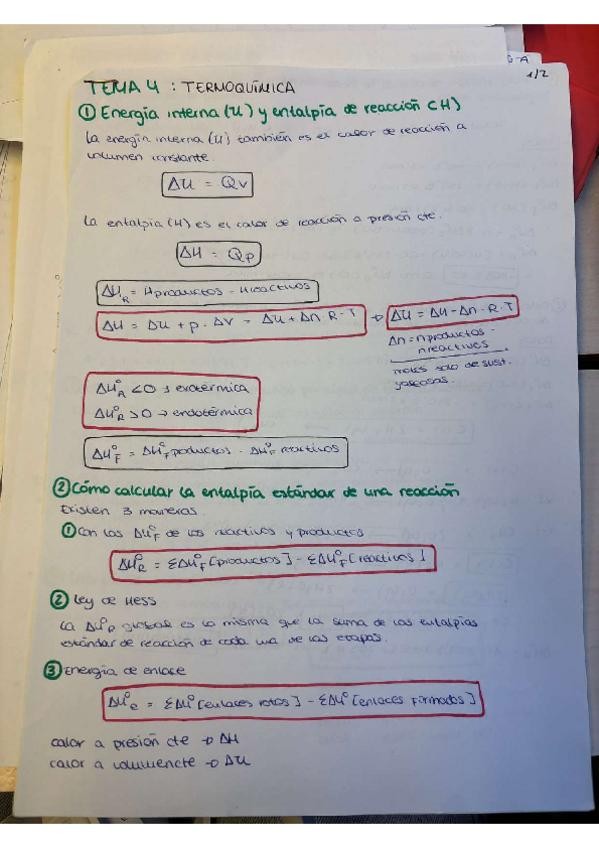 G-A
1/2
TEMA 4 : TERMOQUÍMICA
① Energía interna (U) y entalpía de reacción (H)
La energía interna (U) también es el calor de reacción a
volumen constante.
ΔU = Qv
La entalpía (H) es el calor de reacción a presión cte.
ΔH = Qp
ΔH°R = Hproductos - Hreactivos
ΔH = ΔU + p · ΔV = ΔU + Δn · R · T → ΔU = ΔH - Δn · R · T
Δn = nproductos -
nreactivos.
moles solo de sust.
gaseosas.
ΔH°R < 0 → exotérmica
ΔH°R > 0 → endotérmica
ΔH°F = ΔH°F productos - ΔH°F reactivos
② Cómo calcular la entalpía estándar de una reacción
Existen 3 maneras.
① Con las ΔH°F de los reactivos y productos
ΔH°R = ΣΔH°F [productos] - ΣΔH°F [reactivos]
② Ley de Hess
La ΔH°R global es la misma que la suma de las entalpías
estándar de reacción de cada una de las etapas.
③ Energía de enlace
ΔH°R = ΣΔH° [enlaces rotos] - ΣΔH° [enlaces formados]
calor a presión cte → ΔH
calor a volumen cte → ΔU